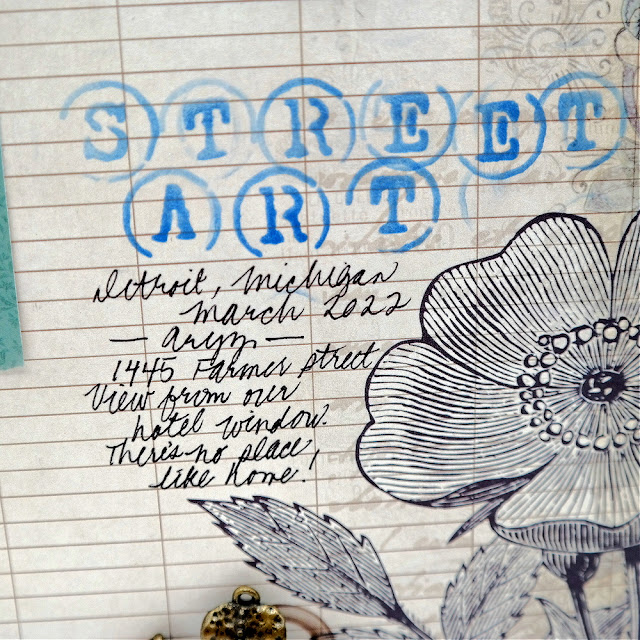 STREET
ART
Detroit, Michigan
March 2022
1445 Farmer Street
View from our
hotel window.
There's no place
like home!